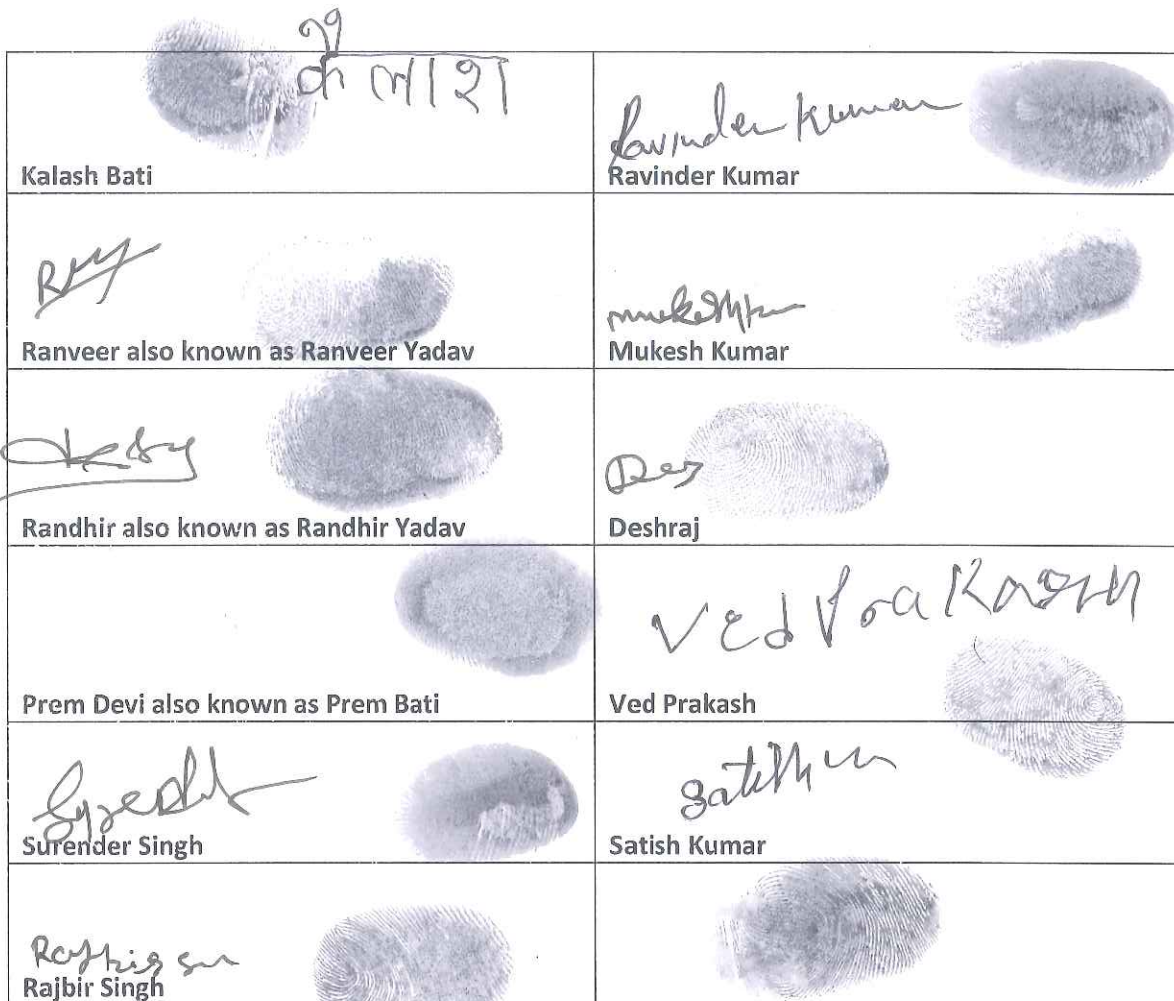 कैलाश
Kalash Bati
Ravinder Kumar
Ravinder Kumar
Ranveer also known as Ranveer Yadav
Mukesh Kumar
Randhir also known as Randhir Yadav
Des
Deshraj
Prem Devi also known as Prem Bati
Ved Prakash
Ved Prakash
Surender Singh
Satish Kumar
Rajbir Singh